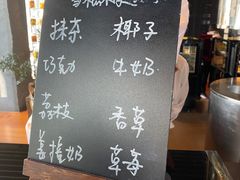 抹茶 椰子
巧克力 牛奶
荔枝 香草
姜撞奶 草莓